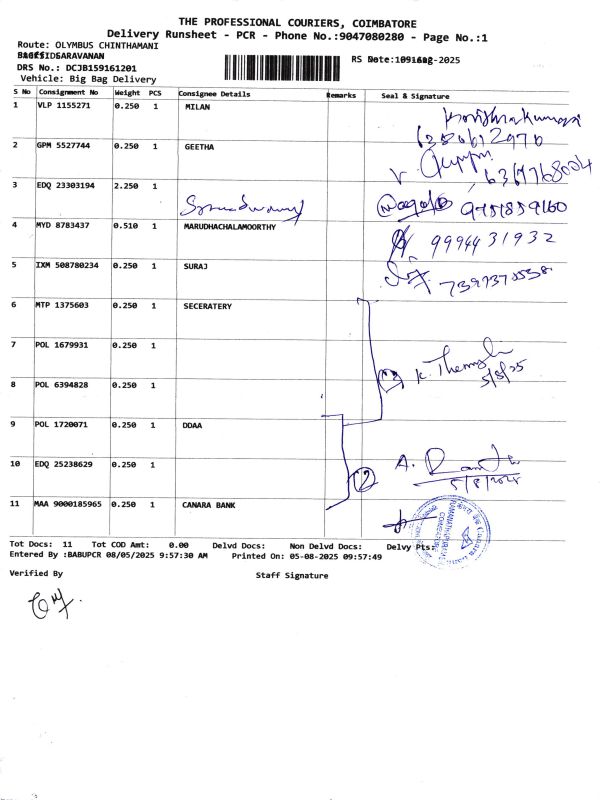 THE PROFESSIONAL COURIERS, COIMBATORE
Delivery Runsheet - PCR - Phone No.:9047080280 - Page No.:1
Route: OLYMBUS CHINTHAMANI
SARAVANAN
DRS No.: DCJB159161201
Vehicle: Big Bag Delivery
S No Consignment No Weight PCS Consignee Details Remarks Seal & Signature
1 VLP 1155271 0.250 1 MILAN
2 GPM 5527744 0.250 1 GEETHA
3 EDQ 23303194 2.250 1 9751859160
4 MYD 8783437 0.510 1 MARUDHACHALAMOORTHY 9994431932
5 IXM 508780234 0.250 1 SURAJ
6 MTP 1375603 0.250 1 SECERATERY
7 POL 1679931 0.250 1 K.
5/8/25
8 POL 6394828 0.250 1
9 POL 1720071 0.250 1 DDAA
10 EDQ 25238629 0.250 1 A.
2
11 MAA 9000185965 0.250 1 CANARA BANK
Tot Docs: 11 Tot COD Amt: 0.00 Delvd Docs: Non Delvd Docs: Delvy Pts:
Entered By :BABUPCR 08/05/2025 9:57:30 AM Printed On: 05-08-2025 09:57:49
Verified By Staff Signature